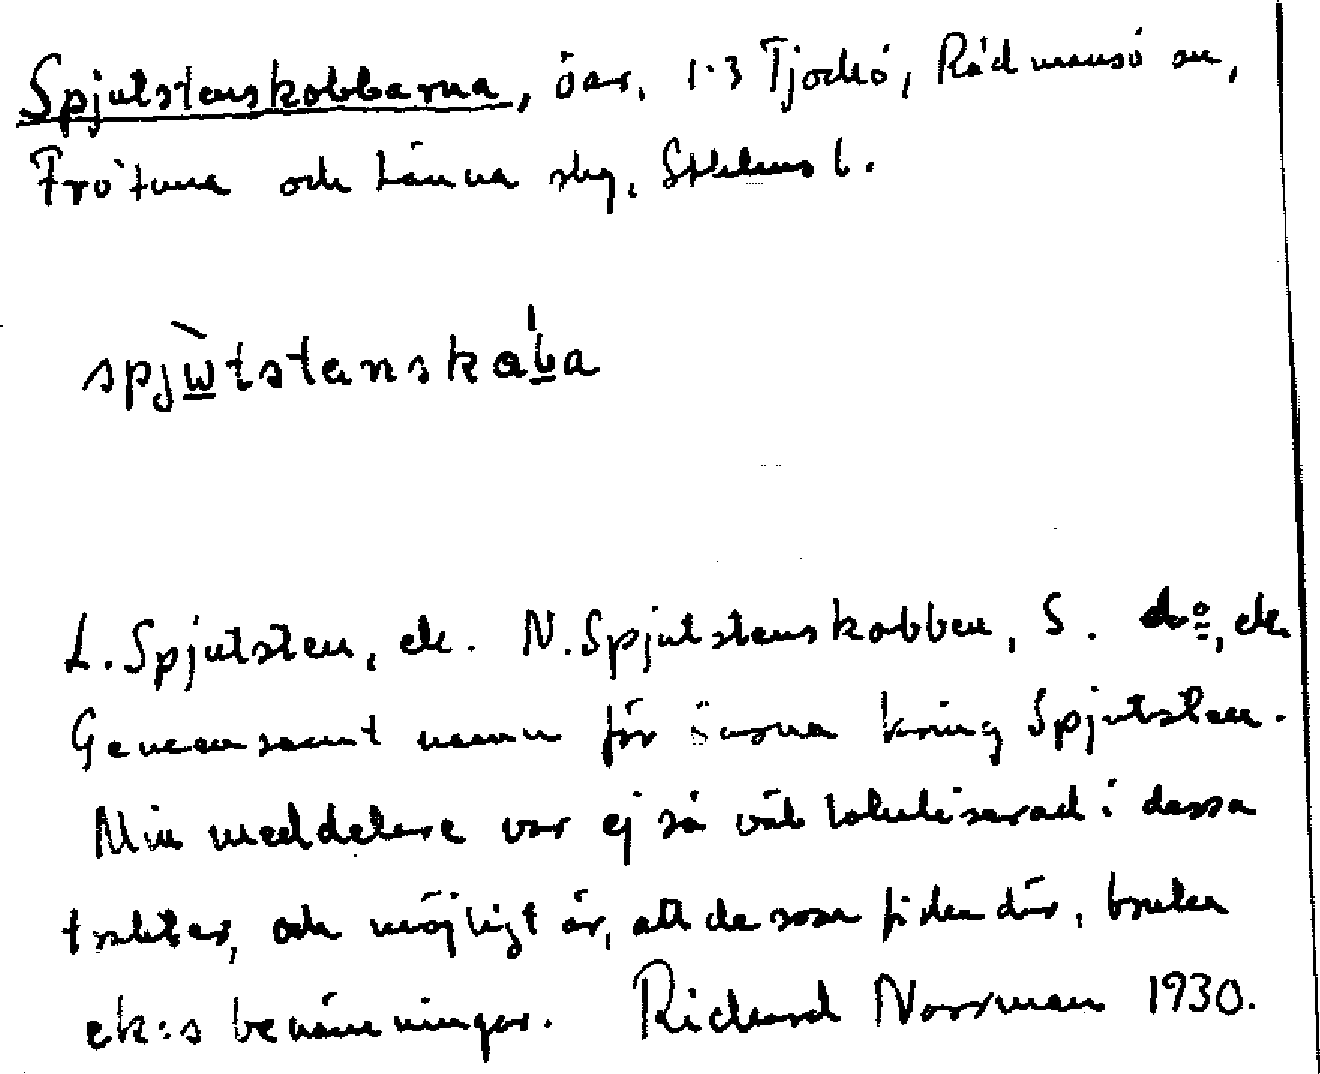 Spjutstenskobbarna, öar, 1.3 Tjockö, Rådmansö sn,
Frötuna och Länna skg, Sthlms l.
spjẁtstenskaba
L. Spjutsten, ek. N. Spjutstenskobben, S. do, ek.
Gemensamt namn för öarna kring Spjutsten.
Min meddelare var ej så väl lokaliserad i dessa
trakter, och möjligt är, att de som fiska där, bruka
ek:s benämningar. Richard Norrman 1930.